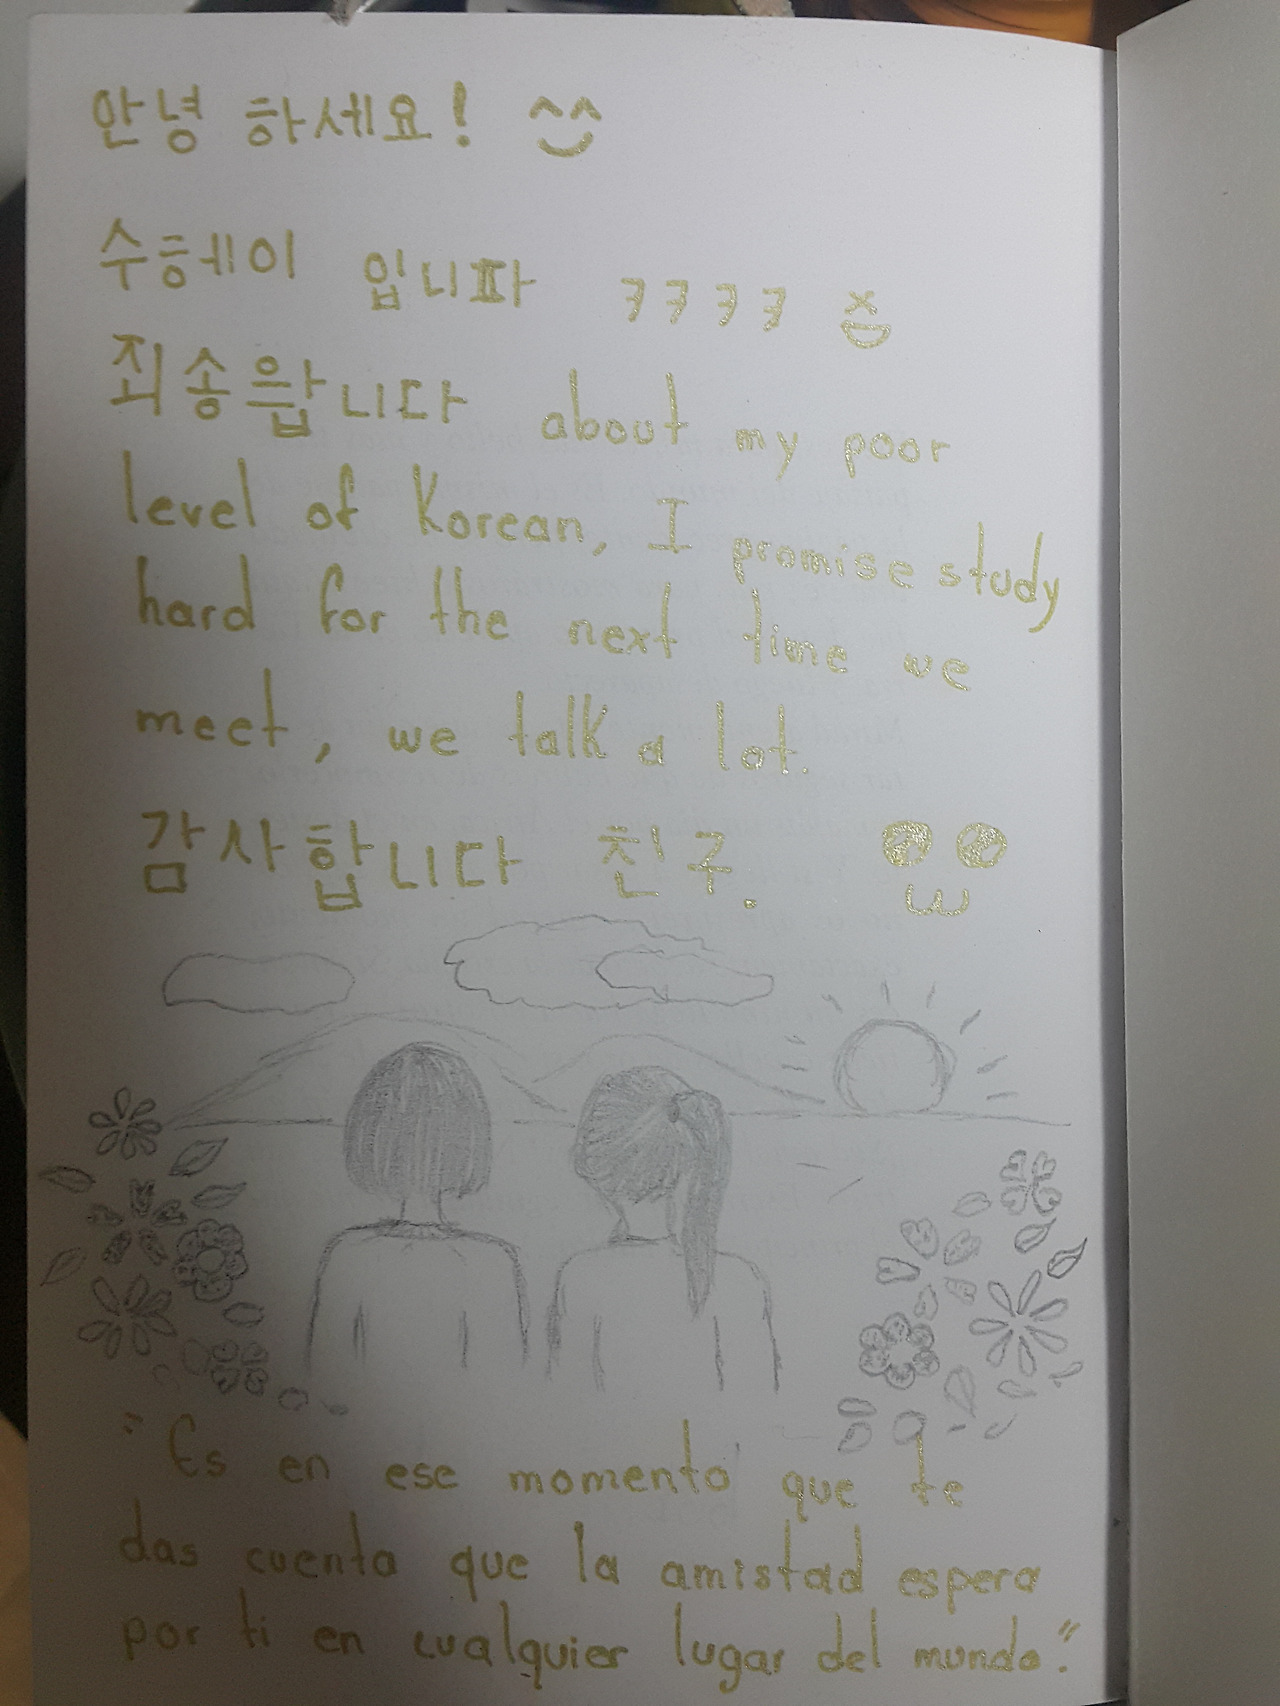 안녕 하세요! ^^
수헤이 입니파 ㅋㅋㅋㅋ
죄송웁니다 about my poor
level of Korean, I promise study
hard for the next time we
meet, we talk a lot.
감사합니다 친구.
"Es en ese momento que te
das cuenta que la amistad espera
por ti en cualquier lugar del mundo."